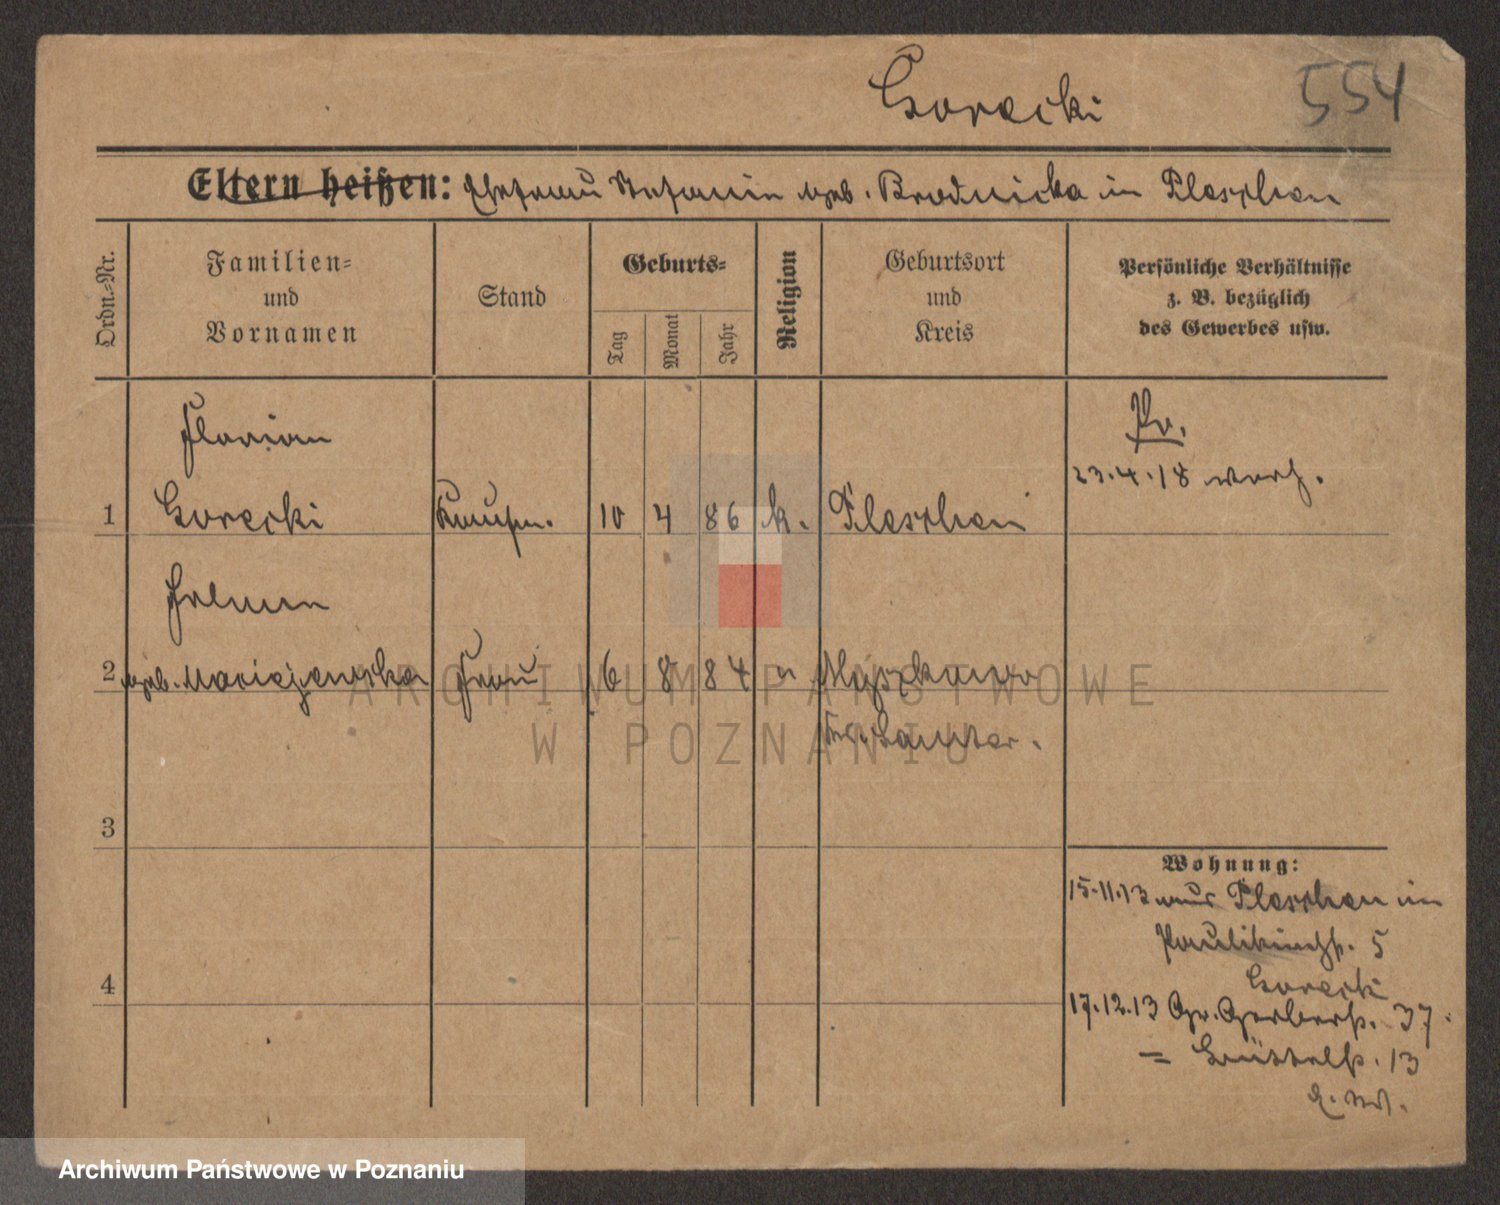 Gorecki
554
Eltern heißen: Ehefrau Stefanie geb. Brodnicka in Pleschen
Ordn.-Nr.
Familien-
und
Vornamen
Stand
Geburts-
Tag
Monat
Jahr
Religion
Geburtsort
und
Kreis
Persönliche Verhältnisse
z. B. bezüglich
des Gewerbes usw.
Florian
Pr.
23.4.18
1 Gorecki Kaufm. 10 4 86 k. Pleschen
2 geb. Frau 6 8 84 "
3
Wohnung:
15.11.13 aus Pleschen in
Paulikirchstr. 5
Gorecki
4
17.12.13 Gr. Gerberstr. 37
= 13
ARCHIWUM PAŃSTWOWE
W POZNANIU
Archiwum Państwowe w Poznaniu